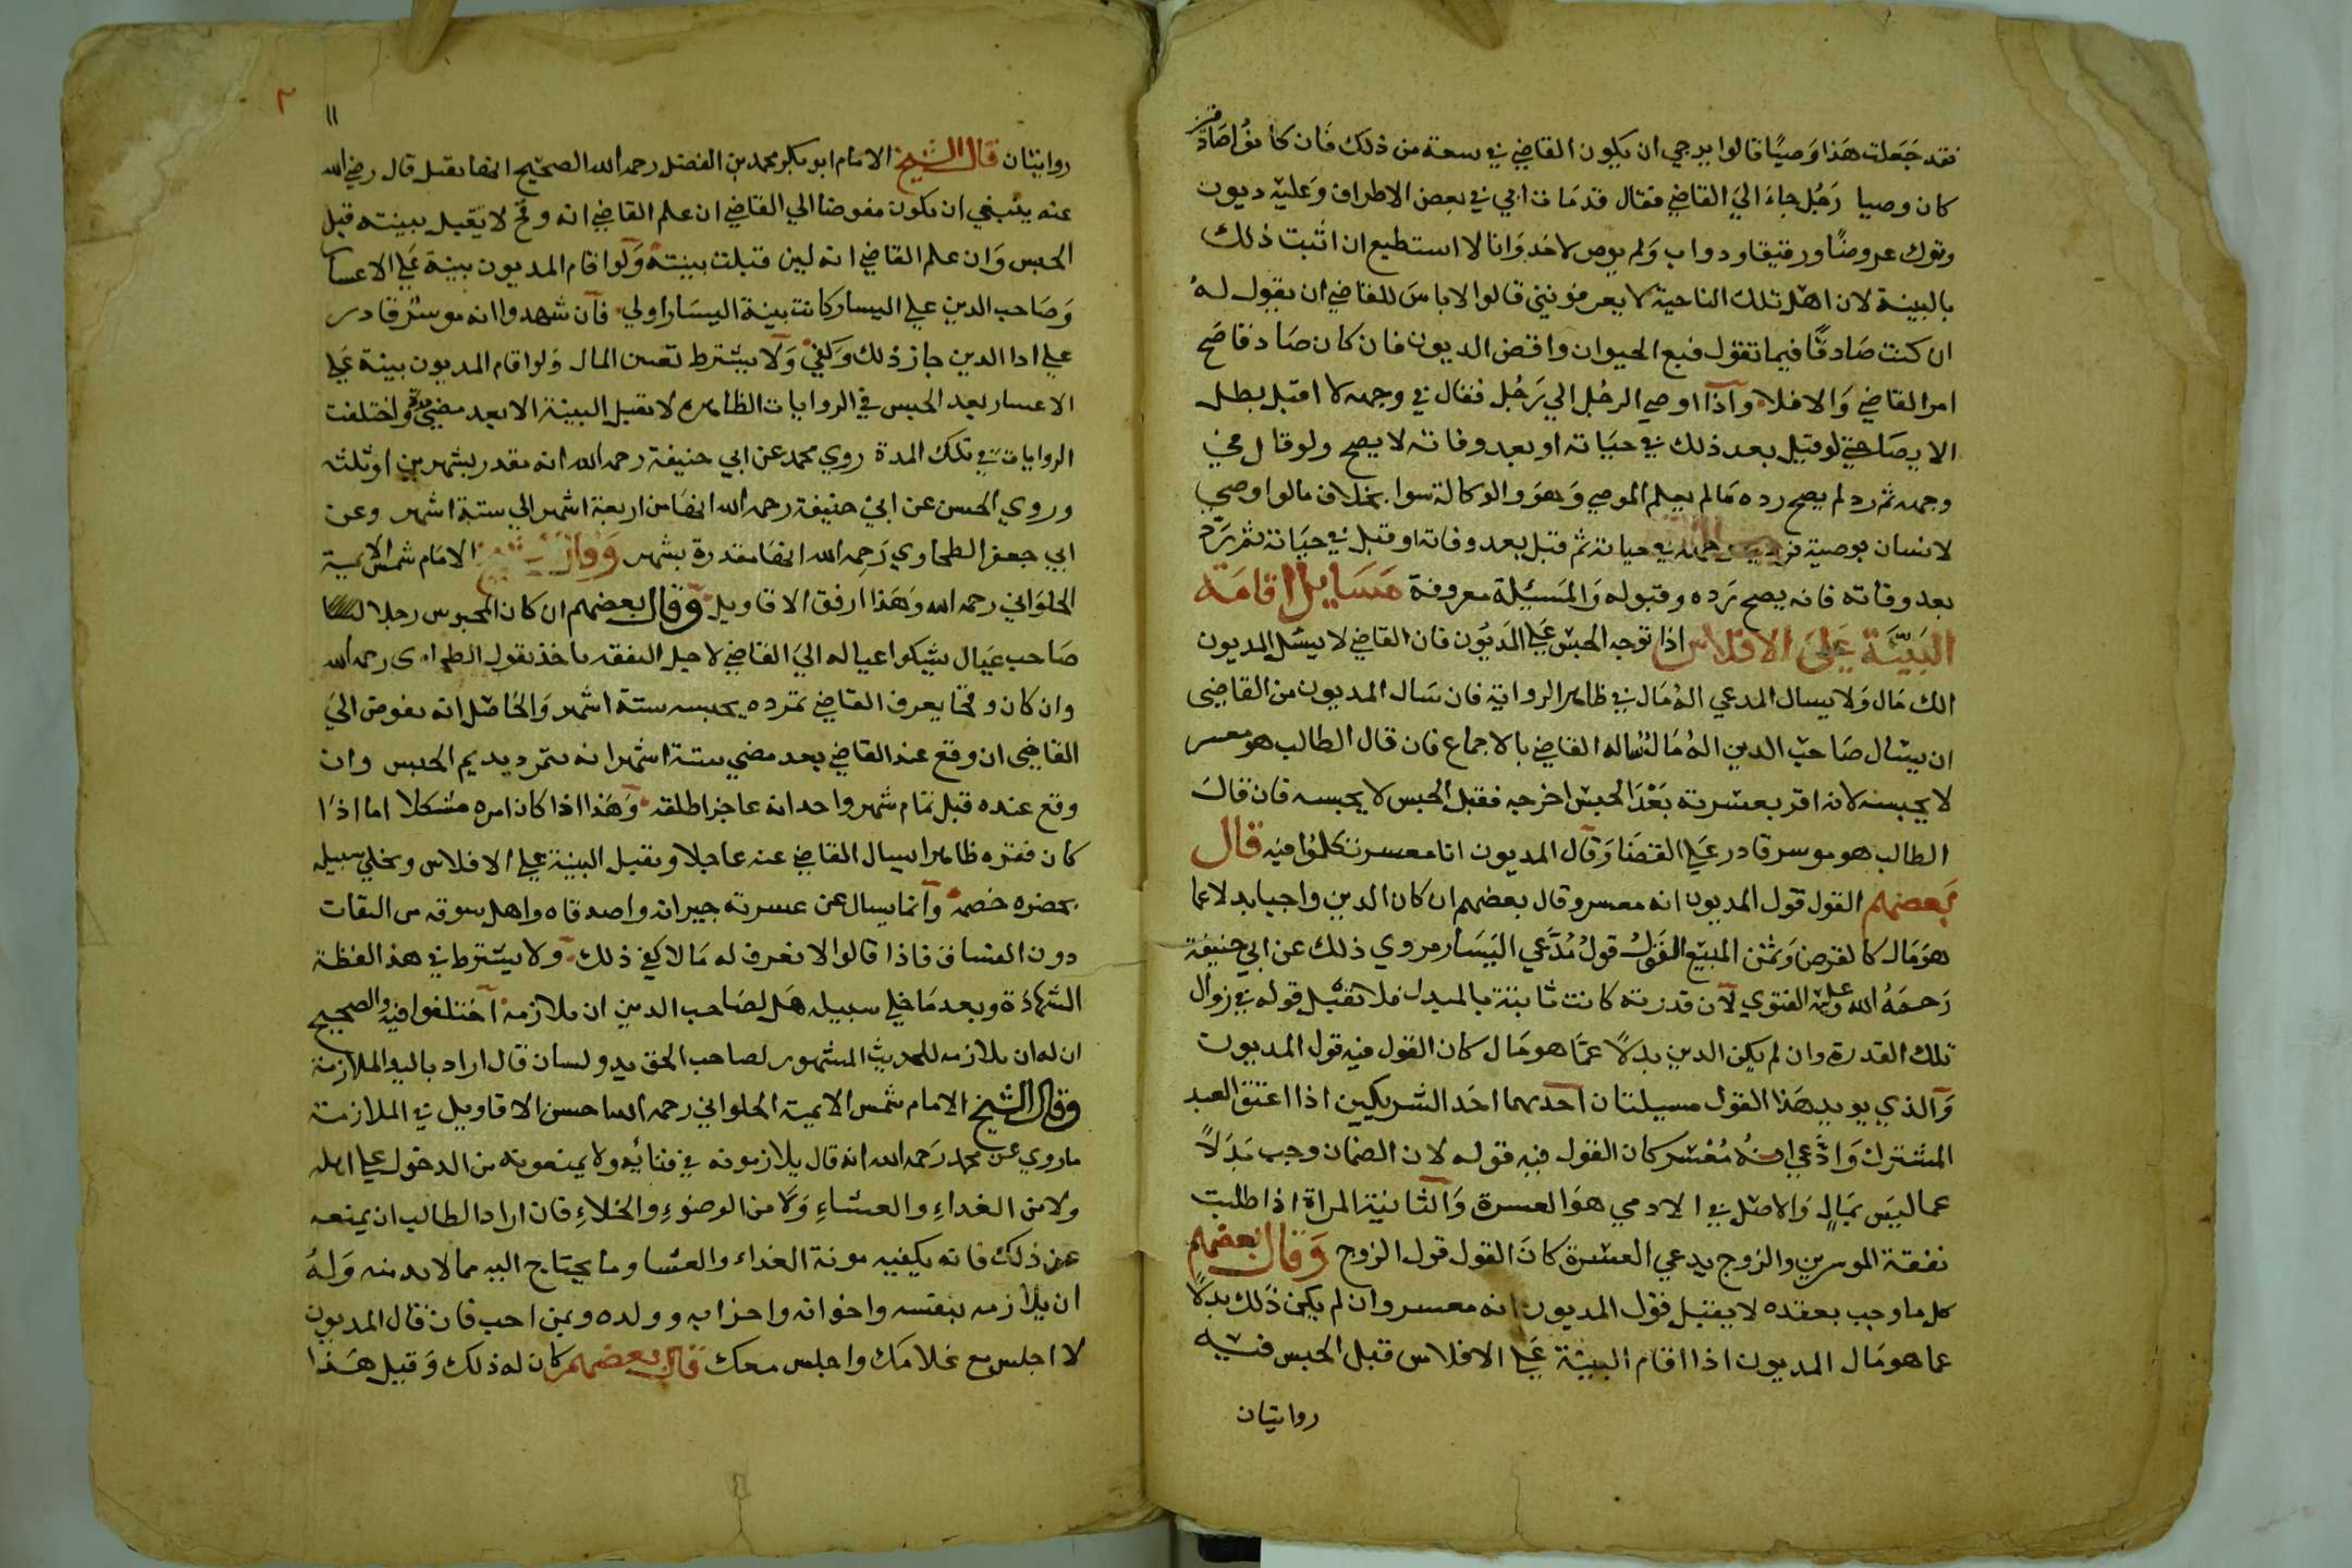 فقد جعلت هذا وصيًا قالوا يرجي ان يكون القاضي في سعة من ذلك فان كانوا صادقين
كان وصيا رجل جاء الي القاضي فقال قد مات ابي في بعض الاطراف وعليه ديون
وترك عروضًا ورقيقا ودواب ولم يوص لاحد وانا لا استطيع ان اثبت ذلك
بالبينة لان اهل تلك الناحية لا يعرفونني قالوا لا باس للقاضي ان يقول له
ان كنت صادقًا فيما تقول فبع الحيوان واقض الديون فان كان صادقا صح
امر القاضي والا فلا واذا اوصي الرجل الي رجل فقال في وجهه لا اقبل بطل
الايصا حتي لو قبل بعد ذلك في حياته او بعد وفاته لا يصح ولو قال في
وجهه ثم رد لم يصح رده مالم يعلم الموصي وهو والوكالة سوا بخلاف ما لو اوصي
لانسان بوصية فرد في وجهه في حياته ثم قبل بعد وفاته او قبل في حياته ثم رد
بعد وفاته فانه يصح رده وقبوله والمسئلة معروفة مسايل اقامة
البينة علي الافلاس اذا توجه الحبس علي المديون فان القاضي لا يسئل المديون
الك مال ولا يسال المدعي اله مال في ظاهر الرواية فان سال المديون من القاضي
ان يسال صاحب الدين اله مال ساله القاضي بالاجماع فان قال الطالب هو معسر
لا يحبسه لانه اقر بعسرته بعد الحبس اخرجه فقبل الحبس لا يحبسه فان قال
الطالب هو موسر قادر علي القضا وقال المديون انا معسر تكلموا فيه قال
بعضهم القول قول المديون انه معسر وقال بعضهم ان كان الدين واجبا بدلا عما
هو مال كالقرض وثمن المبيع القول قول مدعي اليسار مروي ذلك عن ابي حنيفة
رحمه الله وعليه الفتوي لان قدرته كانت ثابتة بالمبدل فلا تقبل قوله في زوال
تلك القدرة وان لم يكن الدين بدلاً عما هو مال كان القول فيه قول المديون
والذي يويد هذا القول مسيلتان احديهما احد الشريكين اذا اعتق العبد
المشترك وادعي انه معسر كان القول فيه قوله لان الضمان وجب بدلاً
عما ليس بمال والاصل في الادمي هو العسرة والثانية المراة اذا طلبت
نفقة الموسرين والزوج يدعي العسرة كان القول قول الزوج وقال بعضهم
كل ما وجب بعقده لا يقبل قول المديون انه معسر وان لم يكن ذلك بدلاً
عما هو مال المديون اذا اقام البينة علي الافلاس قبل الحبس فيه
روايتان
١١
٢
روايتان قال الشيخ الامام ابو بكر محمد بن الفضل رحمه الله الصحيح انها تقبل قال رضي الله
عنه ينبغي ان يكون مفوضا الي القاضي ان علم القاضي انه وقح لا تقبل بينته قبل
الحبس وان علم القاضي انه لين قبلت بينته ولو اقام المديون بينة علي الاعسا
وصاحب الدين علي اليسار كانت بينة اليسار اولي فان شهدوا انه موسر قادر
علي ادا الدين جاز ذلك وكفي ولا يشترط تعين المال ولو اقام المديون بينة علي
الاعسار بعد الحبس في الروايات الظاهره لا تقبل البينة الا بعد مضي مدة واختلفت
الروايات في تلك المدة روي محمد عن ابي حنيفة رحمه الله انه مقدر بشهرين او ثلثه
وروي الحسن عن ابي حنيفة رحمه الله انها من اربعة اشهر الي ستة اشهر وعن
ابي جعفر الطحاوي رحمه الله انها مقدرة بشهر وقال الشيخ الامام شمس الايمة
الحلواني رحمه الله وهذا ارفق الاقاويل وقال بعضهم ان كان المحبوس رجلا
صاحب عيال يشكوا عياله الي القاضي لاجل النفقه ياخذ بقول الطحاوي رحمه الله
وان كان وقحا يعرف القاضي تمرده يحبسه ستة اشهر والحاصل انه يفوض الي
القاضي ان وقع عند القاضي بعد مضي ستة اشهر انه متمرد يديم الحبس وان
وقع عنده قبل تمام شهر واحد انه عاجز اطلقه وهذا اذا كان امره مشكلا اما اذا
كان فقره ظاهرا يسال القاضي عنه عاجلا ويقبل البينة علي الافلاس ويخلي سبيله
بحضره خصمه وانما يسال عن عسرته جيرانه واصدقاه واهل سوقه من الثقات
دون الفساق فاذا قالوا لا نعرف له مالا كفي ذلك ولا يشترط في هذا لفظة
الشهادة وبعد ما خلي سبيله هل لصاحب الدين ان ملازمه اختلفوا فيه والصحيح
ان له ان يلازمه للحديث المشهور لصاحب الحق يد ولسان قال اراد باليد الملازمة
وقال الشيخ الامام شمس الايمة الحلواني رحمه الله احسن الاقاويل في الملازمة
ما روي عن محمد رحمه الله انه قال يلازمونه في فنائه ولا يمنعونه من الدخول علي اهله
ولا من الغداء والعشاء ولا من الوضوء والخلاء فان اراد الطالب ان يمنعه
عن ذلك فانه يكفيه مونة الغداء والعشا وما يحتاج اليه مما لا بد منه وله
ان يلازمه بنفسه واخوانه واحزابه وولده وبمن احب فان قال المديون
لا اجلس مع غلامك واجلس معك قال بعضهم كان له ذلك وقيل هذا